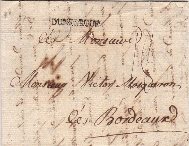 DUNKERQUE
A Monsieur
Monsieur Victor
A Bordeaux